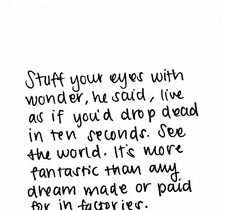 Stuff your eyes with
wonder, he said, live
as if you'd drop dead
in ten seconds. See
the world. It's more
fantastic than any
dream made or paid
for in factories.